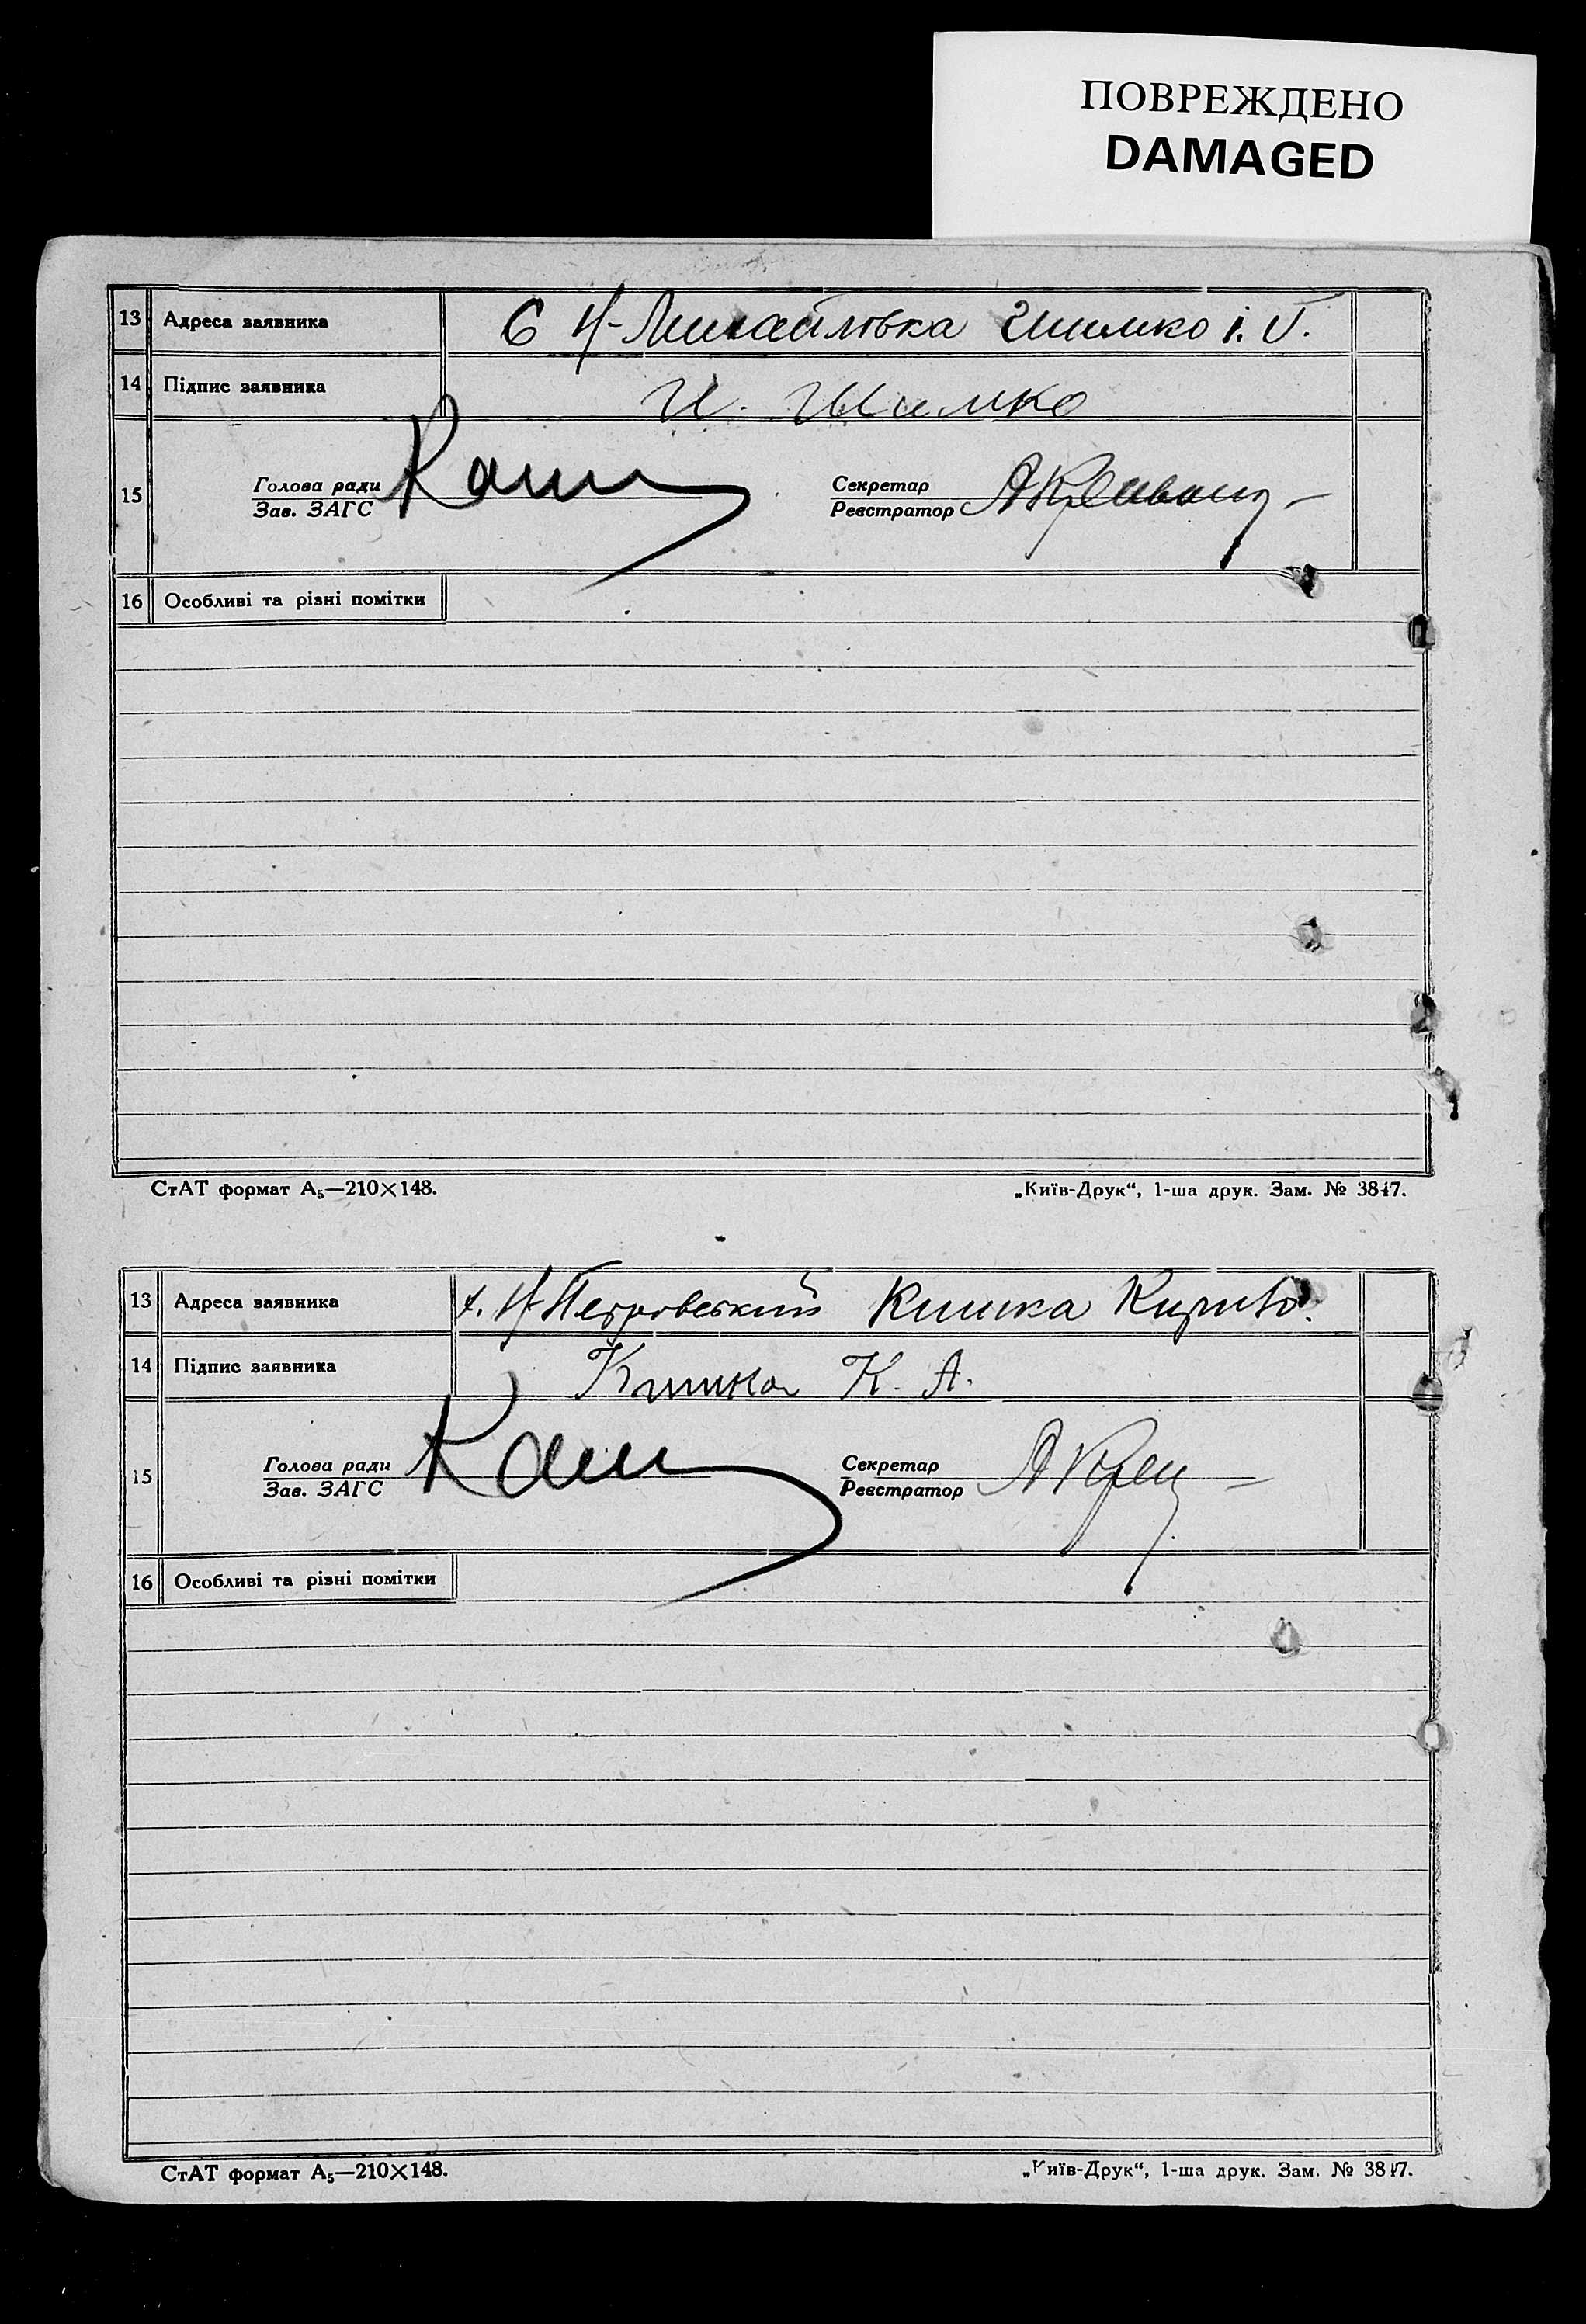 ПОВРЕЖДЕНО
DAMAGED
13 Адреса заявника С Н-Михайловка Шимко і. Г.
14 Підпис заявника И. Шимко
15 Голова ради Секретар
Зав. ЗАГС Реєстратор
16 Особливі та різні помітки
СтАТ формат А₅—210×148. „Київ-Друк“, 1-ша друк. Зам. № 3847.
13 Адреса заявника х. Н-Петровский Кишка
14 Підпис заявника Кишка К. А.
15 Голова ради Секретар
Зав. ЗАГС Реєстратор
16 Особливі та різні помітки
СтАТ формат А₅—210×148. „Київ-Друк“, 1-ша друк. Зам. № 3847.